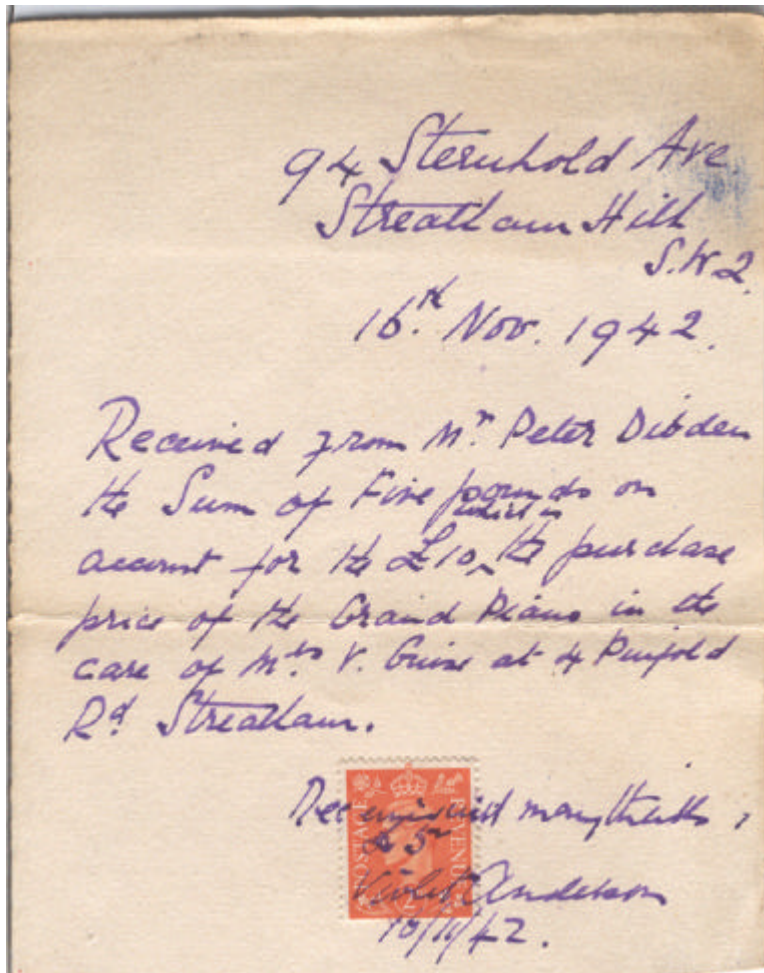 94 Sternhold Ave
Streatham Hill
S.W.2.
16th Nov. 1942.
Received from Mr Peter Dibden
the Sum of Five pounds on
account for the £10, which is the purchase
price of the Grand Piano in the
care of Mrs V. Guise at 4 Pinfold
Rd Streatham.
POSTAGE REVENUE
Received with many thanks,
£5
Violet Anderson
16/11/42.